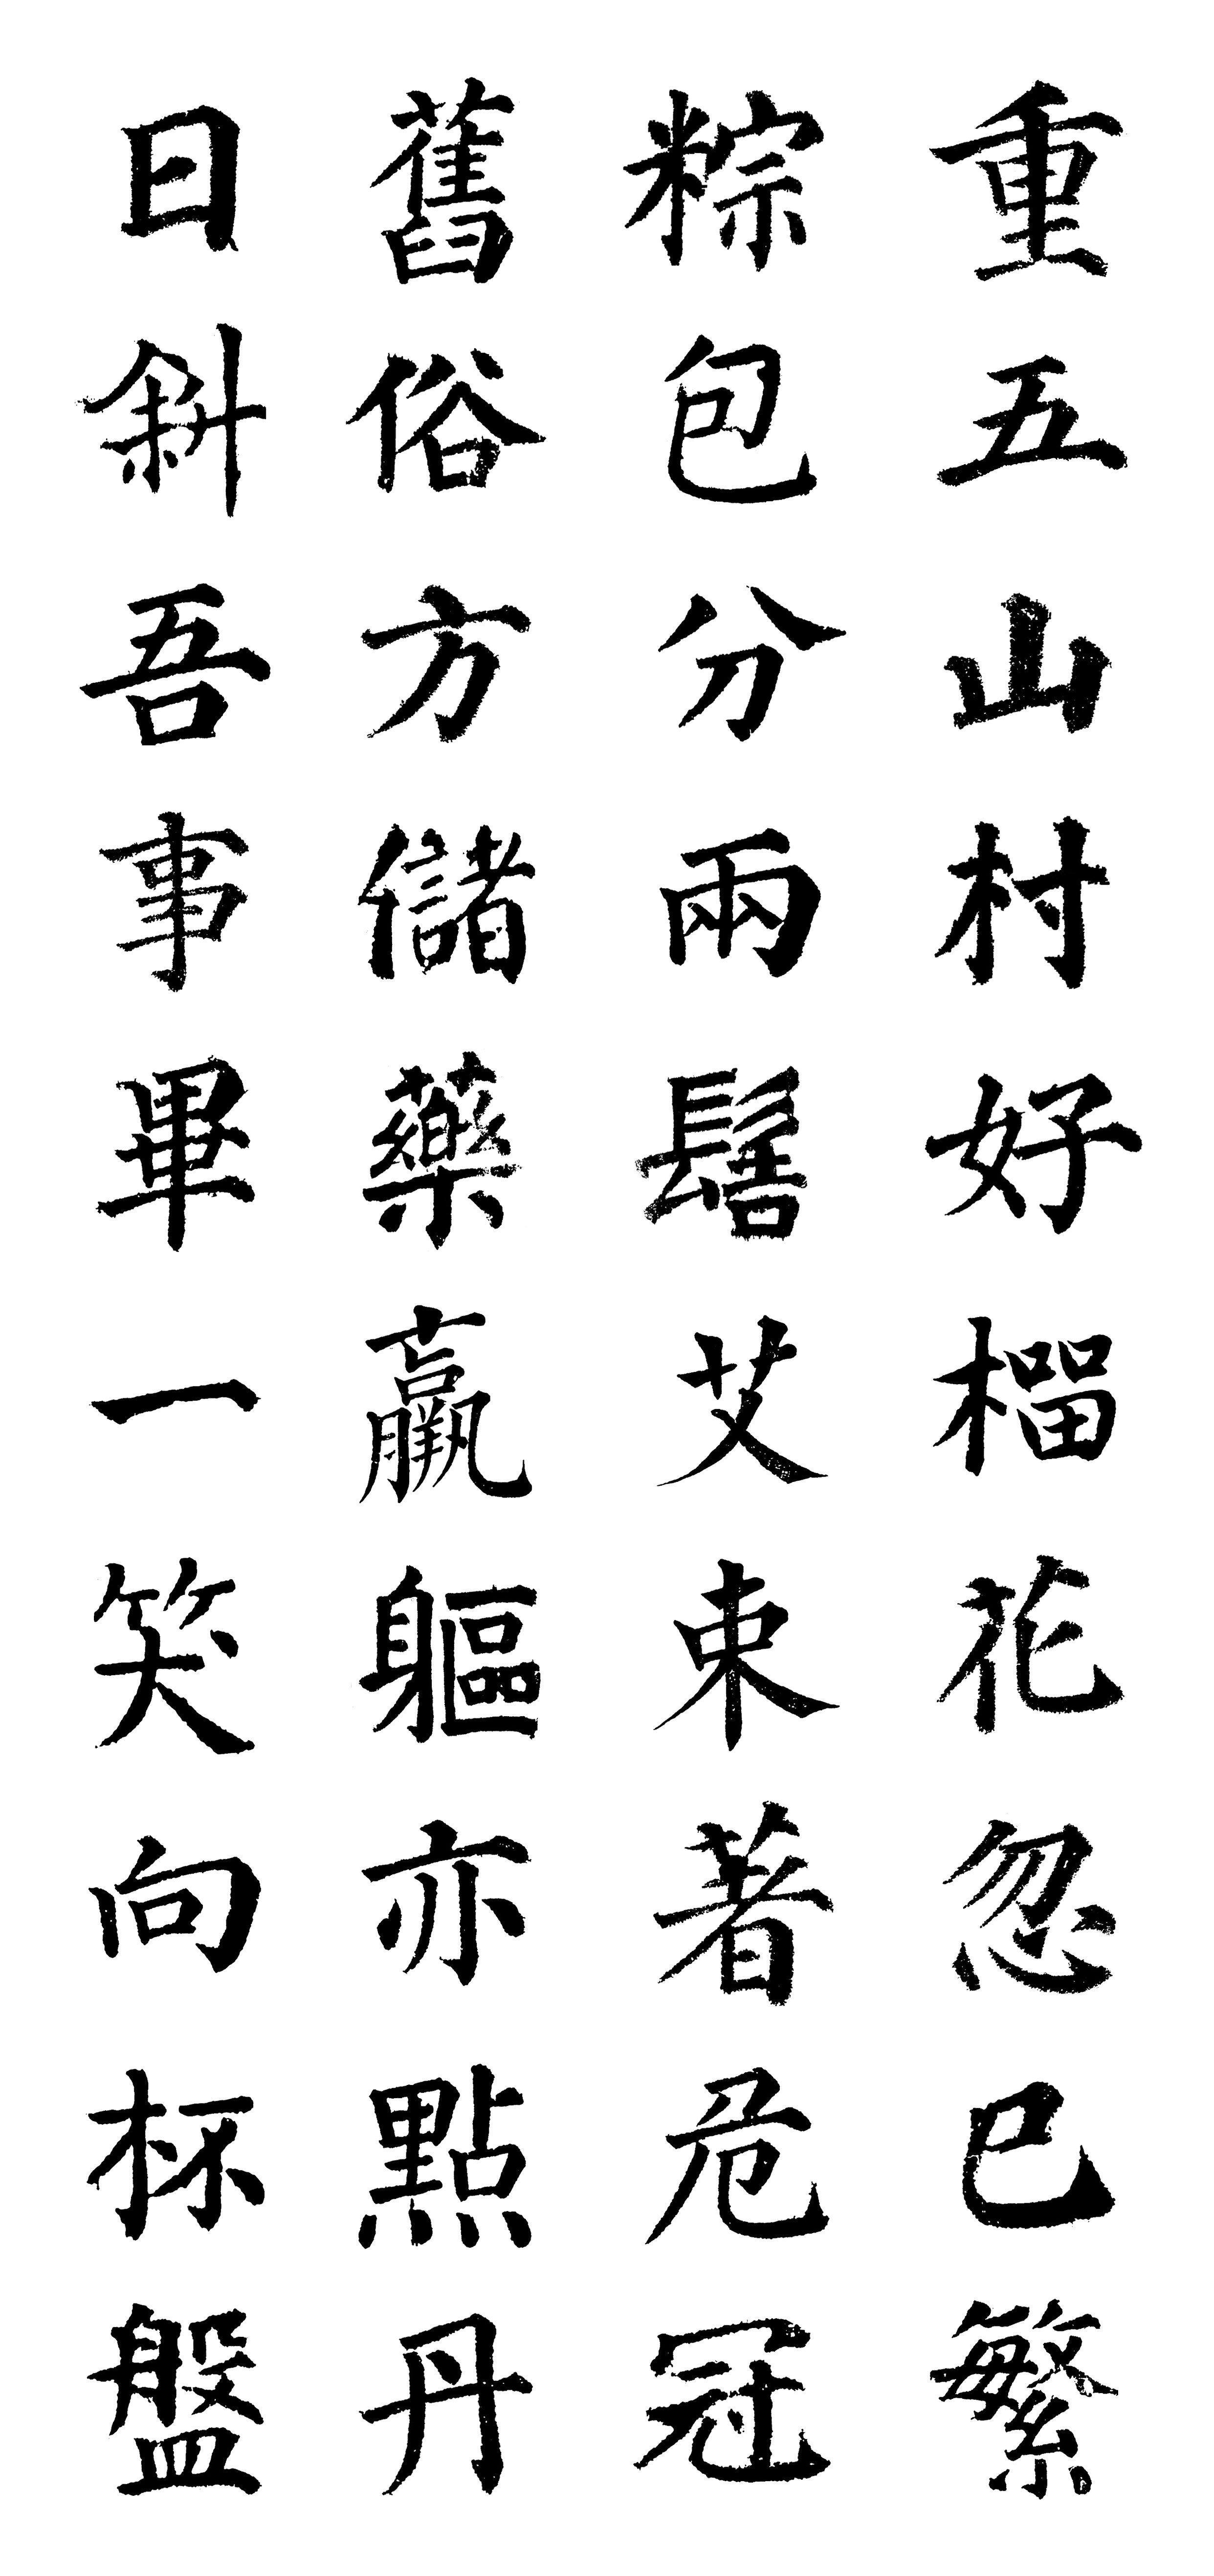 重五山村好榴花忽已繁
粽包分兩髻艾束著危冠
舊俗方儲藥羸軀亦點丹
日斜吾事畢一笑向杯盤